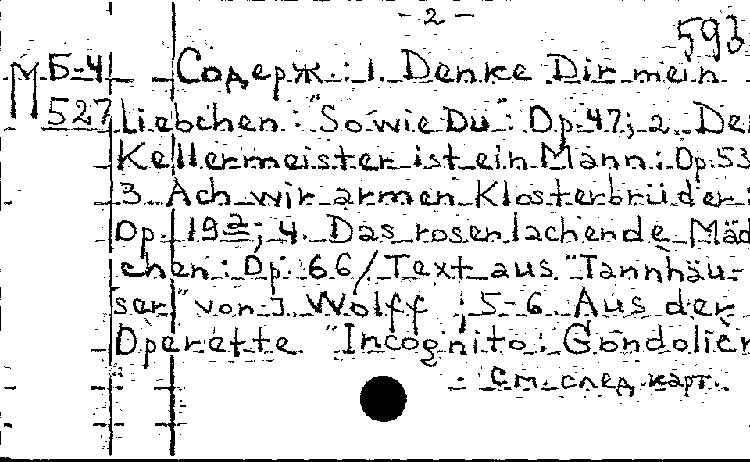 - 2 -
593
М Б-4 Содерж.: 1. Denke Dir mein
527 Liebchen: "So wie Du": Op. 47; 2. De
Kellermeister ist ein Mann: Op. 53
3. Ach wir armen Klosterbrüder:
Op. 192; 4. Das rosenlachende Mäd
chen: Op. 66/Text aus "Tannhäu-
ser" von J. Wolff; 5-6. Aus der
Operette "Incognito: Gondolièr
См. след. карт.